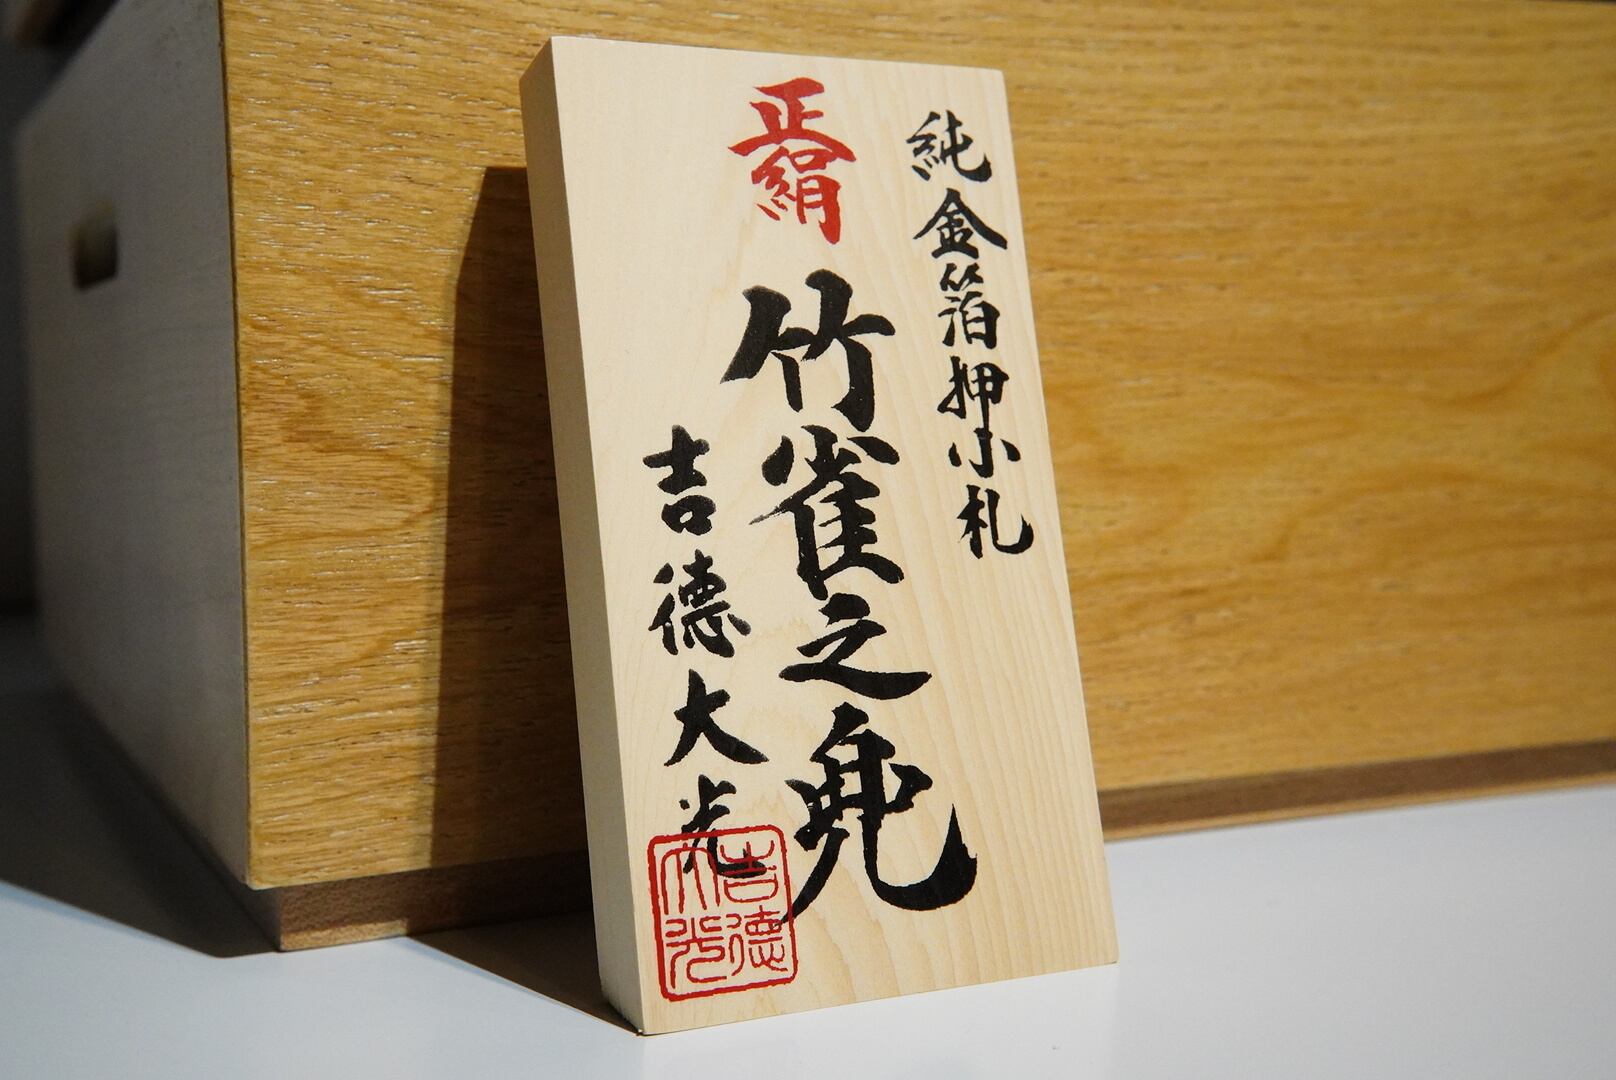 純金箔押小札
正絹
竹雀之兜
吉德大光
吉德大光